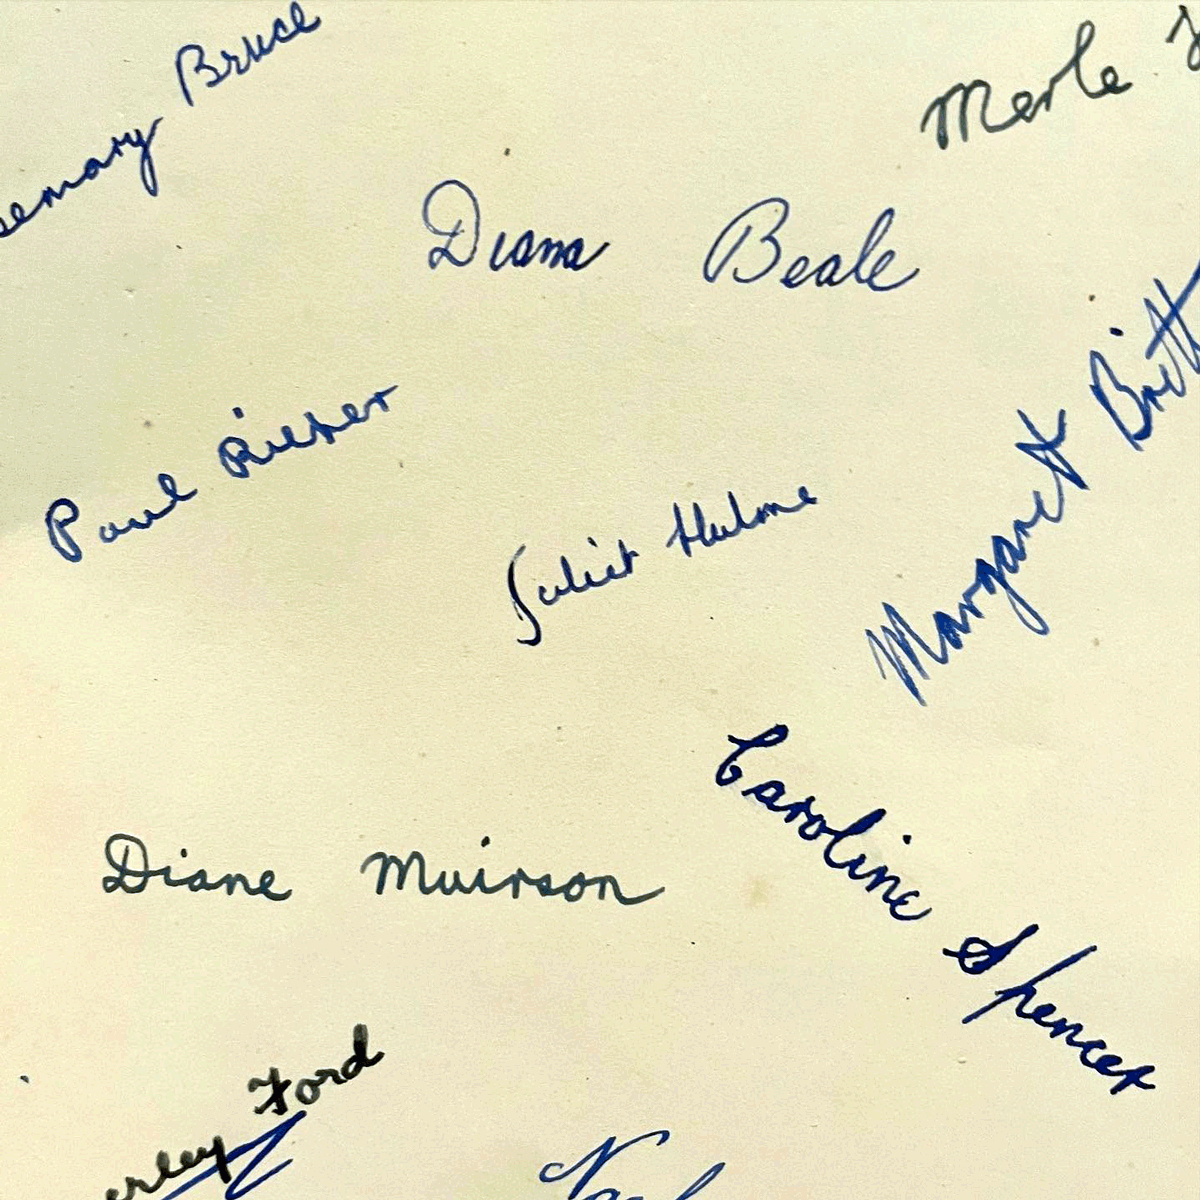 semary Bruce
Merle
Diana Beale
Margaret Britt
Paul
Juliet Hulme
Caroline Spencer
Diane Muirson
erley Ford